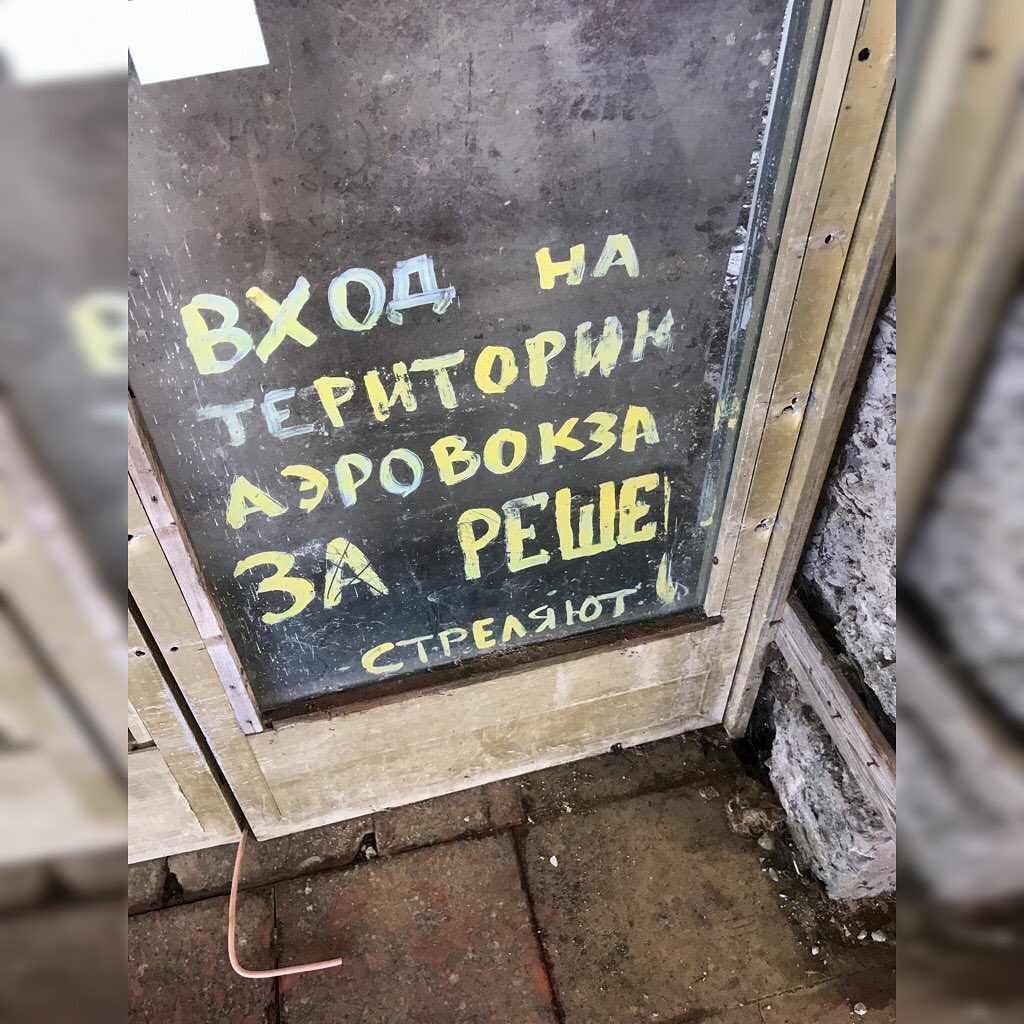 ВХОД НА
ТЕРИТОРИИ
АЭРОВОКЗА
ЗА РЕШЕ
СТРЕЛЯЮТ